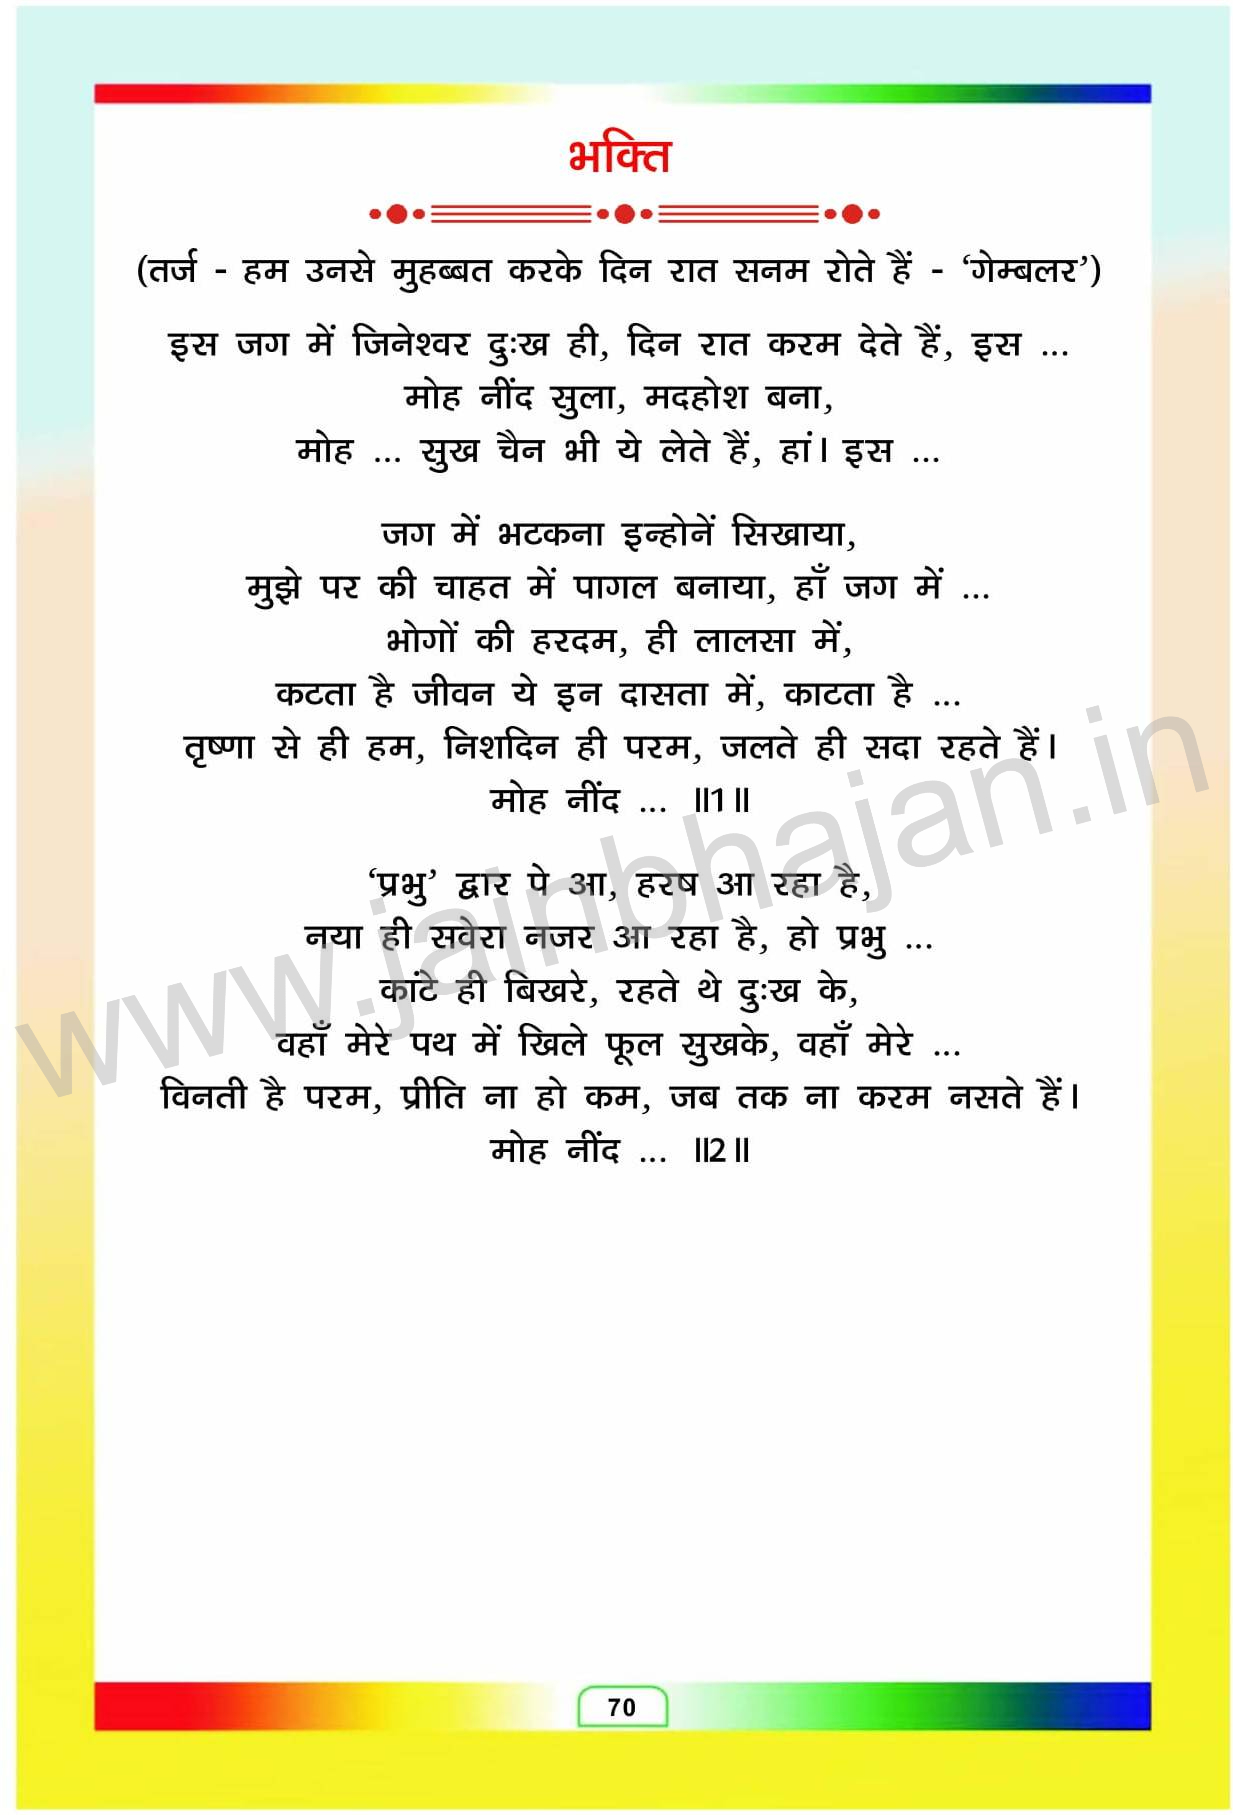 भक्ति
(तर्ज - हम उनसे मुहब्बत करके दिन रात सनम रोते हैं - ‘गेम्बलर’)
इस जग में जिनेश्वर दुःख ही, दिन रात करम देते हैं, इस ...
मोह नींद सुला, मदहोश बना,
मोह ... सुख चैन भी ये लेते हैं, हां। इस ...
जग में भटकना इन्होनें सिखाया,
मुझे पर की चाहत में पागल बनाया, हाँ जग में ...
भोगों की हरदम, ही लालसा में,
कटता है जीवन ये इन दासता में, काटता है ...
तृष्णा से ही हम, निशदिन ही परम, जलते ही सदा रहते हैं।
मोह नींद ... ॥1॥
‘प्रभु’ द्वार पे आ, हरष आ रहा है,
नया ही सवेरा नजर आ रहा है, हो प्रभु ...
कांटे ही बिखरे, रहते थे दुःख के,
वहाँ मेरे पथ में खिले फूल सुखके, वहाँ मेरे ...
विनती है परम, प्रीति ना हो कम, जब तक ना करम नसते हैं।
मोह नींद ... ॥2॥
www.jainbhajan.in
70